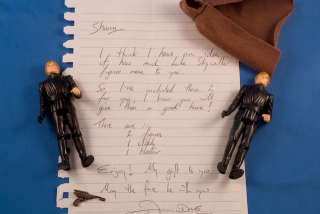 Shawn
I think I have an idea
of how much Luke Skywalker
figures mean to you.
So, I've included these 2
for you, I know you will
give them a good home!
There are :-
2 figures
1 cloak
1 blaster
Enjoy! My gift to you
May the force be with you